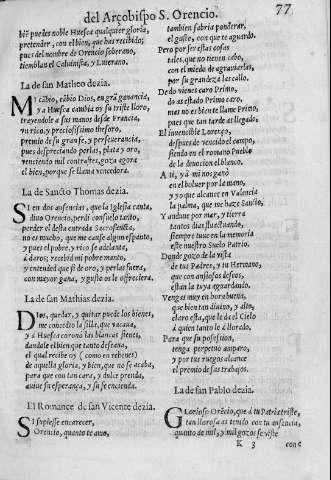 del Arçobispo S. Orencio. 77
biē puedes noble Huesca qualquier gloria,
pretender, con el bien, que has recibido;
pues del nombre de Orencio soberano,
tiemblan el Caluinista, y Luterano.
La de san Matheo dezia.
Mi cābio, cābio Dios, en grā ganancia,
y a Huesca cambia en su triste lloro,
trayendole a sus manos desde Francia,
vn rico, y preciosissimo thesoro,
premio de su gran fe, y perseuerancia,
pues despreciando perlas, plata y oro,
venciendo mil contrastes, goza agora
el bien, porque se llama vencedora.
La de Sancto Thomas dezia.
Si en dos ausencias, que la Iglesia canta,
diuo Orencio, perdi consuelo tanto,
perder el desta entrada Sacrosancta,
no es mucho, que me cause algun espanto,
y pues el pobre, y rico se adelanta,
à daros; recebid mi pobre manto,
y entended que si de oro, y perlas fuera,
con mayor gana, y gusto os le offreciera.
La de san Mathias dezia.
Dios, que dar, y quitar puede los bienes,
me concedio la silla, que vacaua,
y à Huesca coronò las blancas sienes,
dandole el bien que tanto desseaua,
el qual recibe oy ( como en rehenes)
de aquella gloria, y bien, que no se acaba,
para que con tan cara, y dulce prenda,
auiue su esperança, y su fe encienda.
El Romance de san Vicente dezia.
Si supiesse encarecer,
Orencio, quanto te amo,
tambien sabria ponderar,
el gusto, con que te aguardo.
Pero por ser estas cosas
tales, que no tienen cabo,
con el miedo de agrauiarlas,
por su grandeza les callo.
De do vienes caro Primo,
do as estado Primo caro,
mas no es bien te llame Primo,
pues que tan tarde as llegado.
El inuencible Lorenço,
despues de vencido el campo,
siendo en el romano Pueblo
de la deuocion el blanco.
A ti, y à mi nos garò
en el boluer por la mano,
y yo que alcance en Valencia
la palma, que me haze Sancto,
Y anduue por mar, y tierra
tantos dias fluctuando,
siempre tuue en la memoria
este nuestro Suelo Patrio.
Donde gozo de la vista
de tus Padres, y tu Hermano,
que con ansiosos desseos,
estan la tuya aguardando.
Vengas muy en hora buena,
que bien tan diuino, y alto,
claro esta, que le dà el Cielo
à quien tanto le à llorado.
Para que su possession,
tenga perpetuo amparo,
y por tus ruegos alcance
el premio de sus trabajos.
La de san Pablo dezia.
Glorioso Orēcio, que à tu Patria triste,
tan llorosa as tenido con tu ausencia,
quanto de mil, y mil gozos se viste
K 3 con e